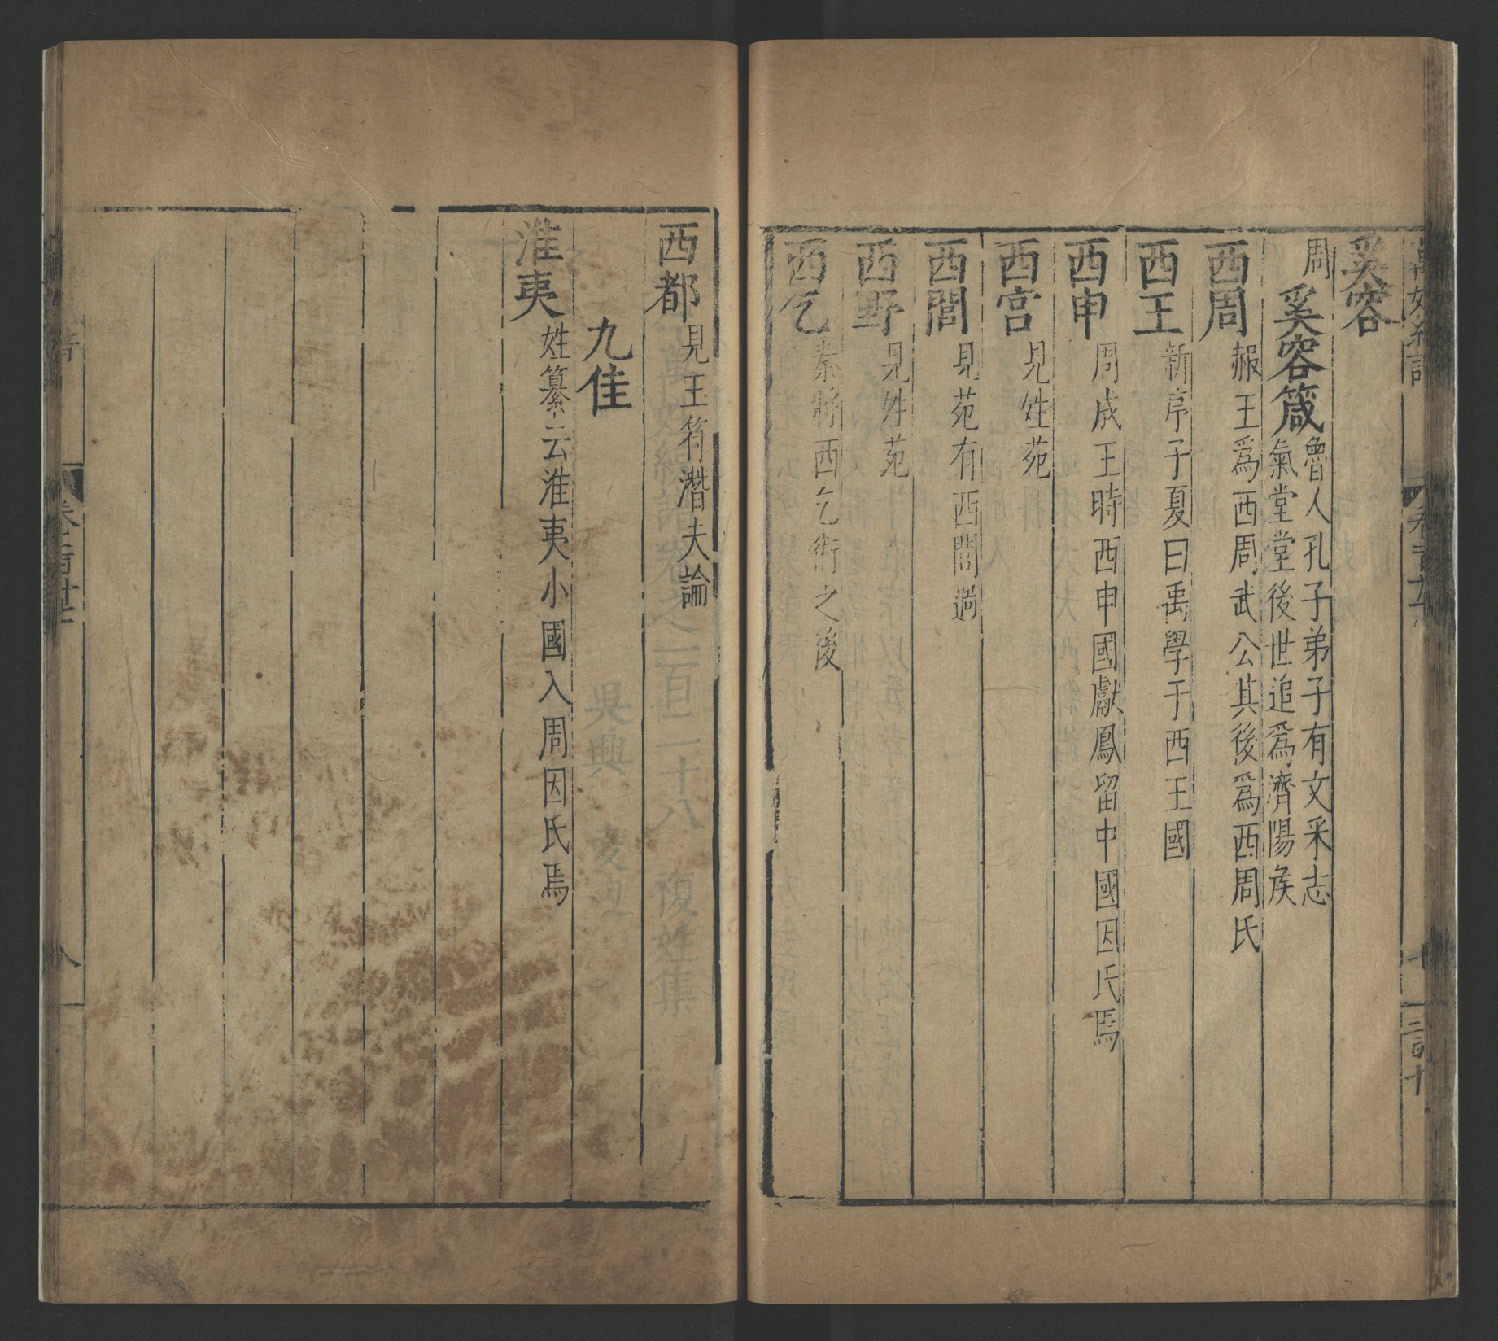 奚容
周 奚容箴 魯人孔子弟子有文采志
氣堂堂後世追爲濟陽矦
西周 赧王爲西周武公其後爲西周氏
西王 新序子夏曰禹學于西王國
西申 周成王時西申國獻鳳留中國因氏焉
西宮 見姓苑
西閭 見苑有西閭過
西野 見姓苑
西乞 秦將西乞術之後
西都 見王符潛夫論
九佳
淮夷 姓纂云淮夷小國入周因氏焉
八